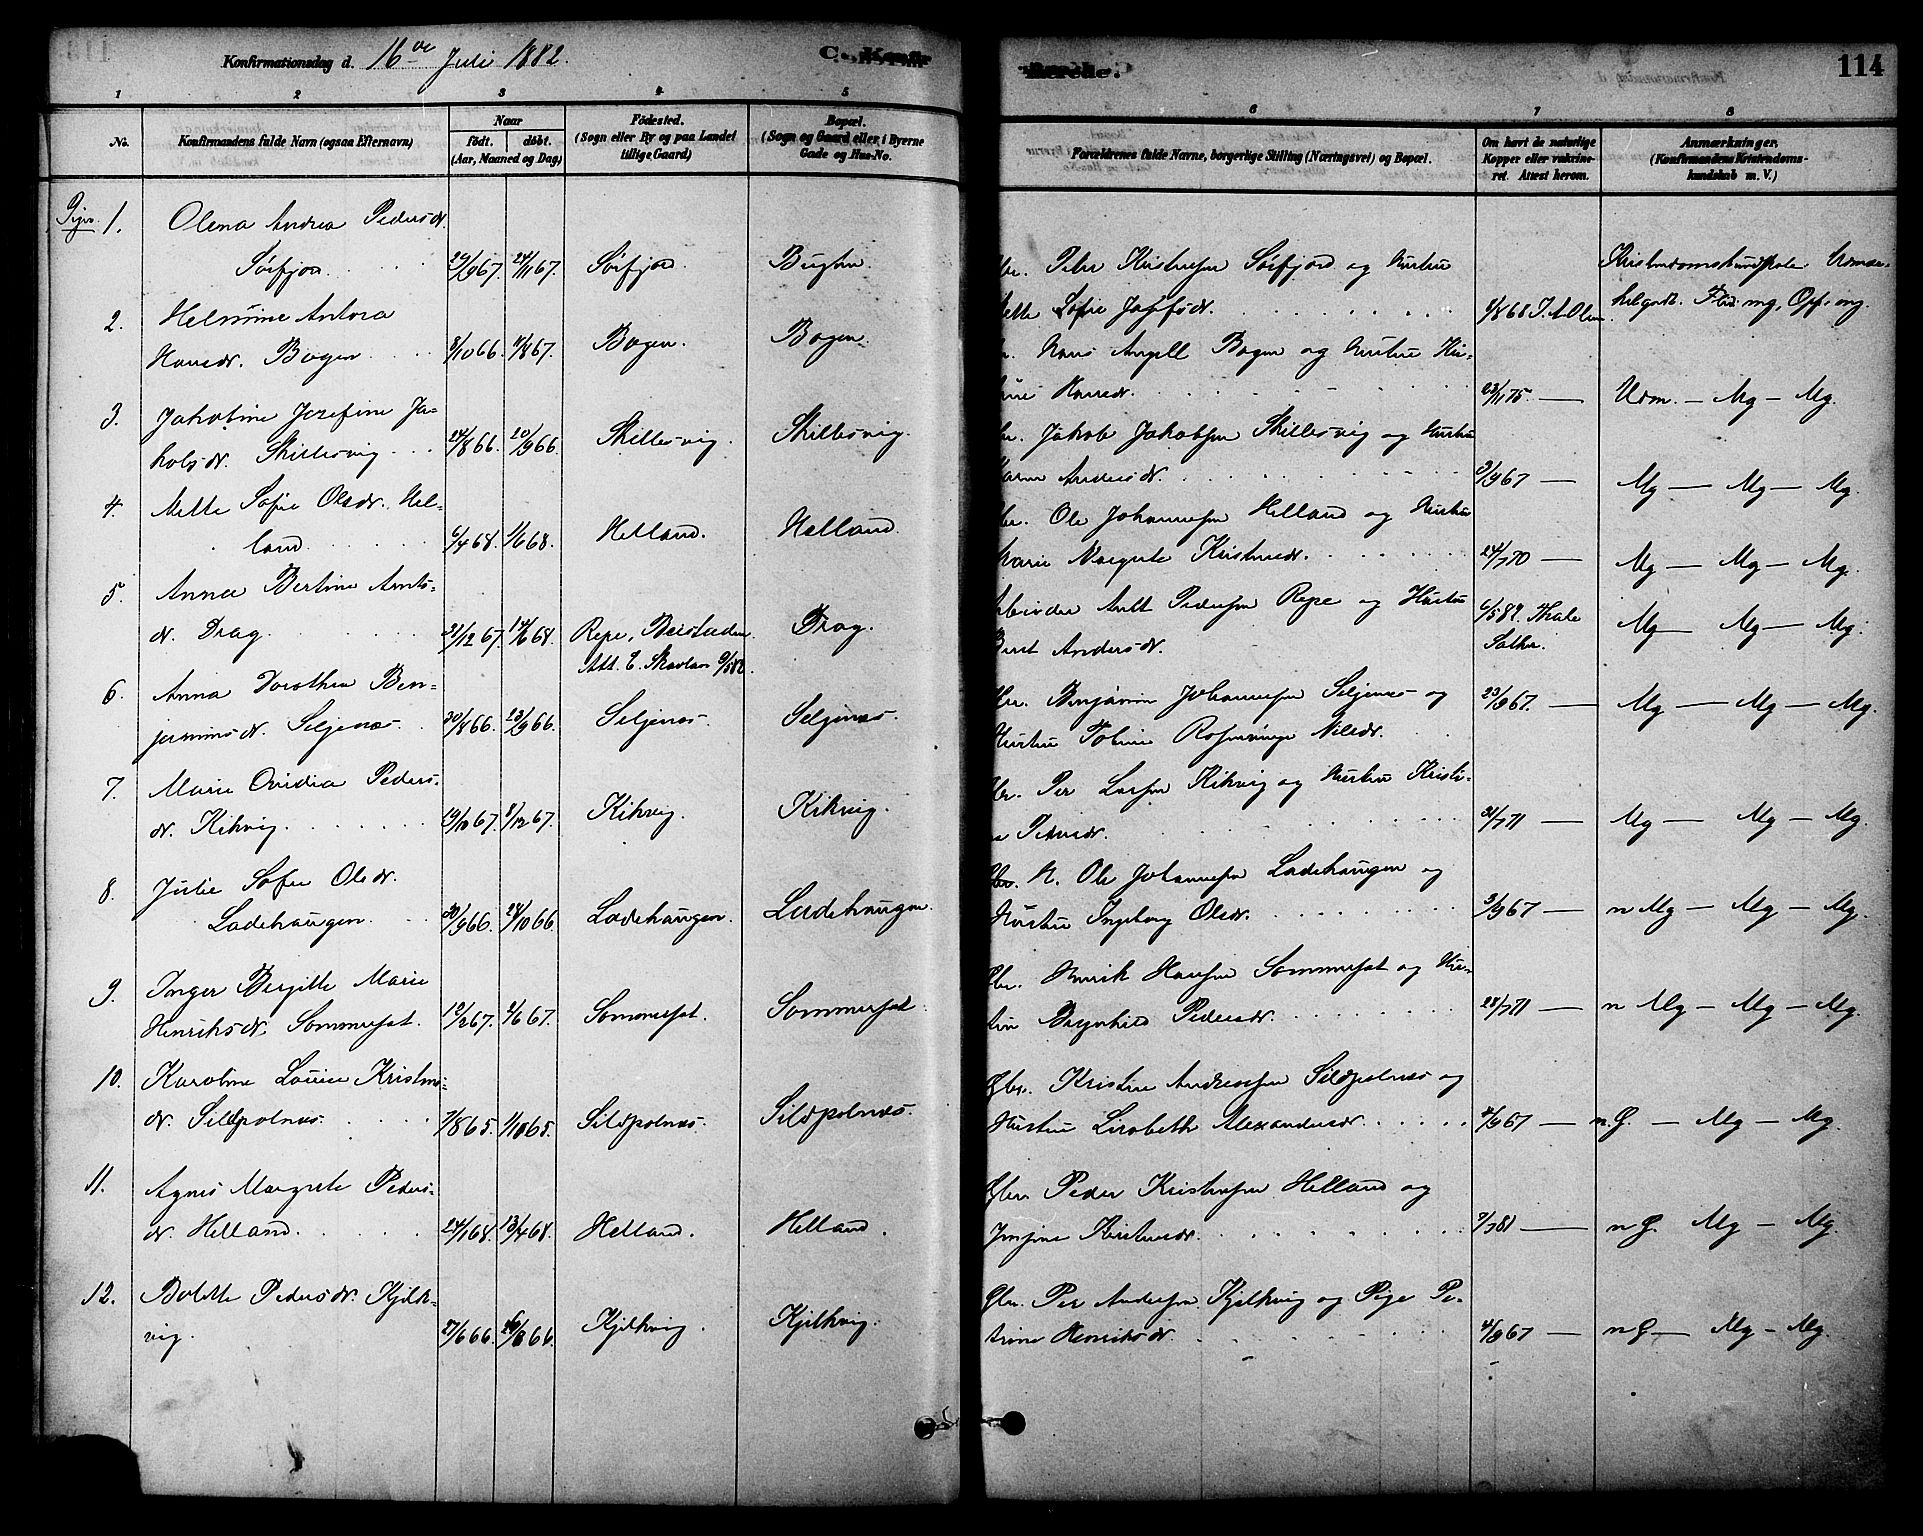 Konfirmationsdag d. 16de Juli 1882.
C. Konfir
merede.
114
1 2 3 4 5 6 7 8
No.
Konfirmandens fulde Navn (ogsaa Efternavn)
Naar
født. døbt.
(Aar, Maaned og Dag)
Fødested.
(Sogn eller By og paa Landet
tillige Gaard)
Bopæl.
(Sogn og Gaard eller i Byerne
Gade og Hus-No.
Forældrenes fulde Navne, borgerlige Stilling (Næringsvei) og Bopæl.
Om havt de naturlige
Kopper eller vakcine-
ret. Attest herom.
Anmærkninger.
(Konfirmandens Kristendoms-
kundskab m. V.)
Piger. 1. Olena Andrea Pedersdr.
Sørfjord 29/9 67. 24/11 67. Sørfjord. Bugten. Gbr. Peder Kristensen Sørfjord og Hustru
Mette Sofie 1/8 68
2. Helmine Antora
Hansdr. Bogen 8/10 66. 11/8 67. Bogen. Bogen. Gbr. Hans Angell Bogen og Hustru
Hansdr. 23/1 75. — Udm. — Mg — Mg.
3. Jakobine Josefine Ja-
kobsdr. Skillesvig 24/8 66. 20/9 66. Skillesvig. Skillesvig. Gbr. Jakob Jakobsen Skillesvig og Hustru
Karen Andersdr. 3/9 67 — Mg — Mg — Mg.
4. Mette Sofie Olsdr. Hel-
land 6/4 68. 1/6 68. Helland. Helland. Gbr. Ole Johannesen Helland og Hustru
Marie Margrete 24/7 70 — Mg — Mg — Mg.
5. Anna Bertine Arnts-
dr. Drag. 31/12 67. 14/6 68. Repe, Beistaden. Drag. Arbeider Arnt Pedersen Repe og Hustru
Att. E. Skavlan 9/5 82. Beret Andersdr. 6/5 82. Mg — Mg — Mg.
6. Anna Dorothea Ben-
jaminsdr. Seljenæs 30/8 66. 23/9 66. Seljenæs. Seljenæs. Gbr. Benjamin Johannesen Seljenæs og
Hustru Nilsdr. 23/9 67. — Mg — Mg — Mg.
7. Marie Ovidia Peders-
dr. Kikvig. 19/10 67. 8/12 67. Kikvig. Kikvig. Gbr. Per Larsen Kikvig og Hustru Kristi-
Pedersdr. 21/7 71 — Mg — Mg — Mg.
8. Julie Sofie Olsdr.
Ladehaugen. 30/9 66. 24/10 66. Ladehaugen. Ladehaugen. Ole Johannesen Ladehaugen og
Hustru Ingeborg Olsdr. 3/9 67 — n Mg — Mg — Mg.
9. Inger Bergitte Marie
Henriksdr. Sommerset. 12/2 67. 4/6 67. Sommerset. Sommerset. Gbr. Henrik Hansen Sommerset og Hu-
stru Pedersdr. 28/7 71 — n Mg — Mg — Mg.
10. Karoline Lovise
dr. Sildpolnæs. 7/8 65. 1/10 65. Sildpolnæs. Sildpolnæs. Gbr. Kristen Andreassen Sildpolnæs og
Hustru Lisabeth Alexandersdr. 4/9 67 — n.G. — Mg — Mg.
11. Agnes Margrete Peders-
dr. Helland. 24/1 68. 13/4 68. Helland. Helland. Gbr. Peder Kristensen Helland og
7/7 81 — n G. Mg — Mg.
12. Bolette Pedersdr. Kjilk-
vig. 27/6 66. 26/8 66. Kjilkvig. Kjilkvig. Gbr. Per Andersen Kjelkvig og Pige Pe-
trine Henriksdr. 4/9 67 — n G — Mg — Mg.